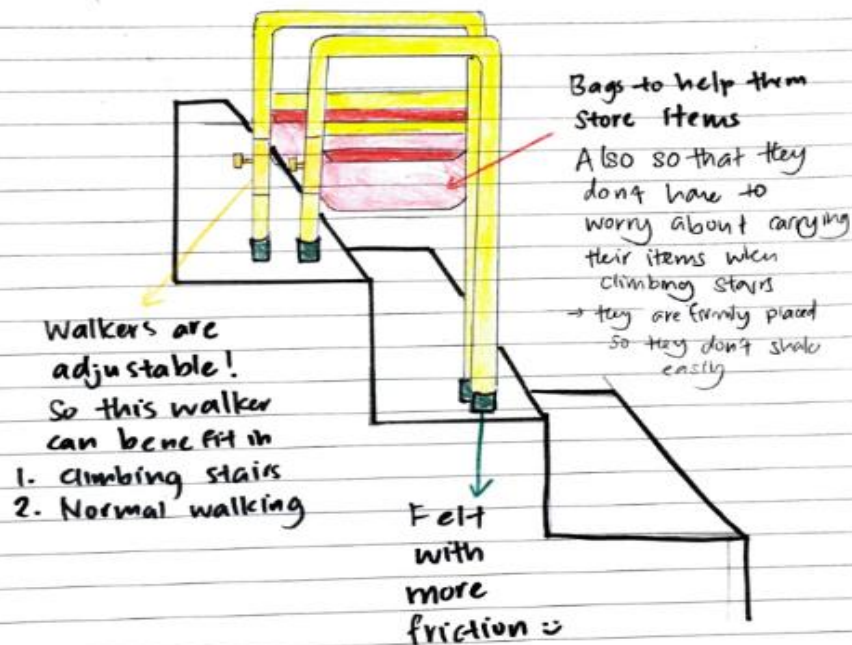 Bags to help them
store items
Also so that they
don't have to
worry about carrying
their items when
climbing stairs
→ they are firmly placed
so they don't shake
easily
Walkers are
adjustable!
So this walker
can benefit in
1. Climbing stairs
2. Normal walking
Felt
with
more
friction :)